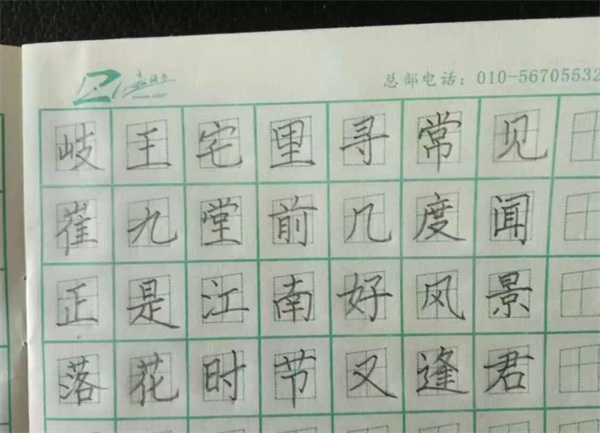 总部电话：010-56705532
岐王宅里寻常见
崔九堂前几度闻
正是江南好风景
落花时节又逢君